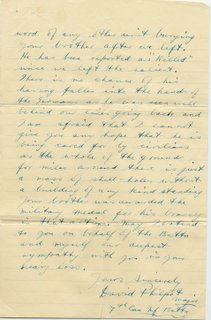 word of any other unit burying
your brother after we left.
He has been reported as "Killed"
since we left the salient.
There is no chance of his
having fallen into the hands of
the Germans as he was seen well
behind our lines going back and
I am afraid that I cannot
give you any hope that he is
being cared for by civilians
as the whole of the ground
for miles around there is just
a mass of shell-holes without
a building of any kind standing
your brother was awarded the
military medal for his bravery
in that action. May I extend
to you on behalf of the Battn
and myself our deepest
sympathy with you in your
heavy loss.
Yours Sincerely
David Philpot
major
7th Can Battn